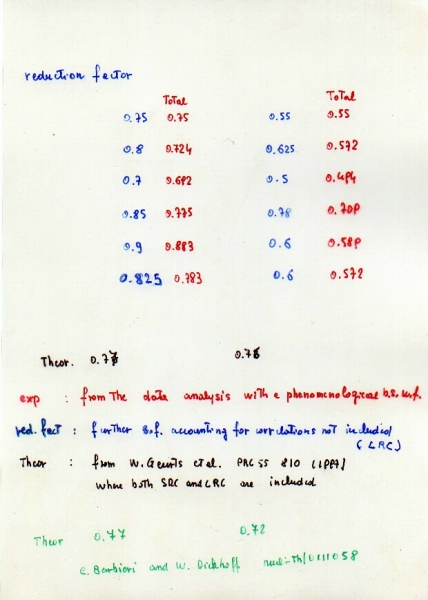 reduction factor
Total Total
0.75 0.75 0.55 0.55
0.8 0.724 0.625 0.572
0.7 0.692 0.5 0.494
0.85 0.775 0.78 0.709
0.9 0.883 0.6 0.589
0.825 0.783 0.6 0.572
Theor. 0.77 0.76
exp : from the data analysis with a phenomenological b.s. w.f.
red. fact : further s.f. accounting for correlations not included
(LRC)
Theor : from W. Geurts et al. PRC 55 810 (1997)
where both SRC and LRC are included
Theor 0.77 0.72
C. Barbieri and W. Dickhoff nucl-th/0111058